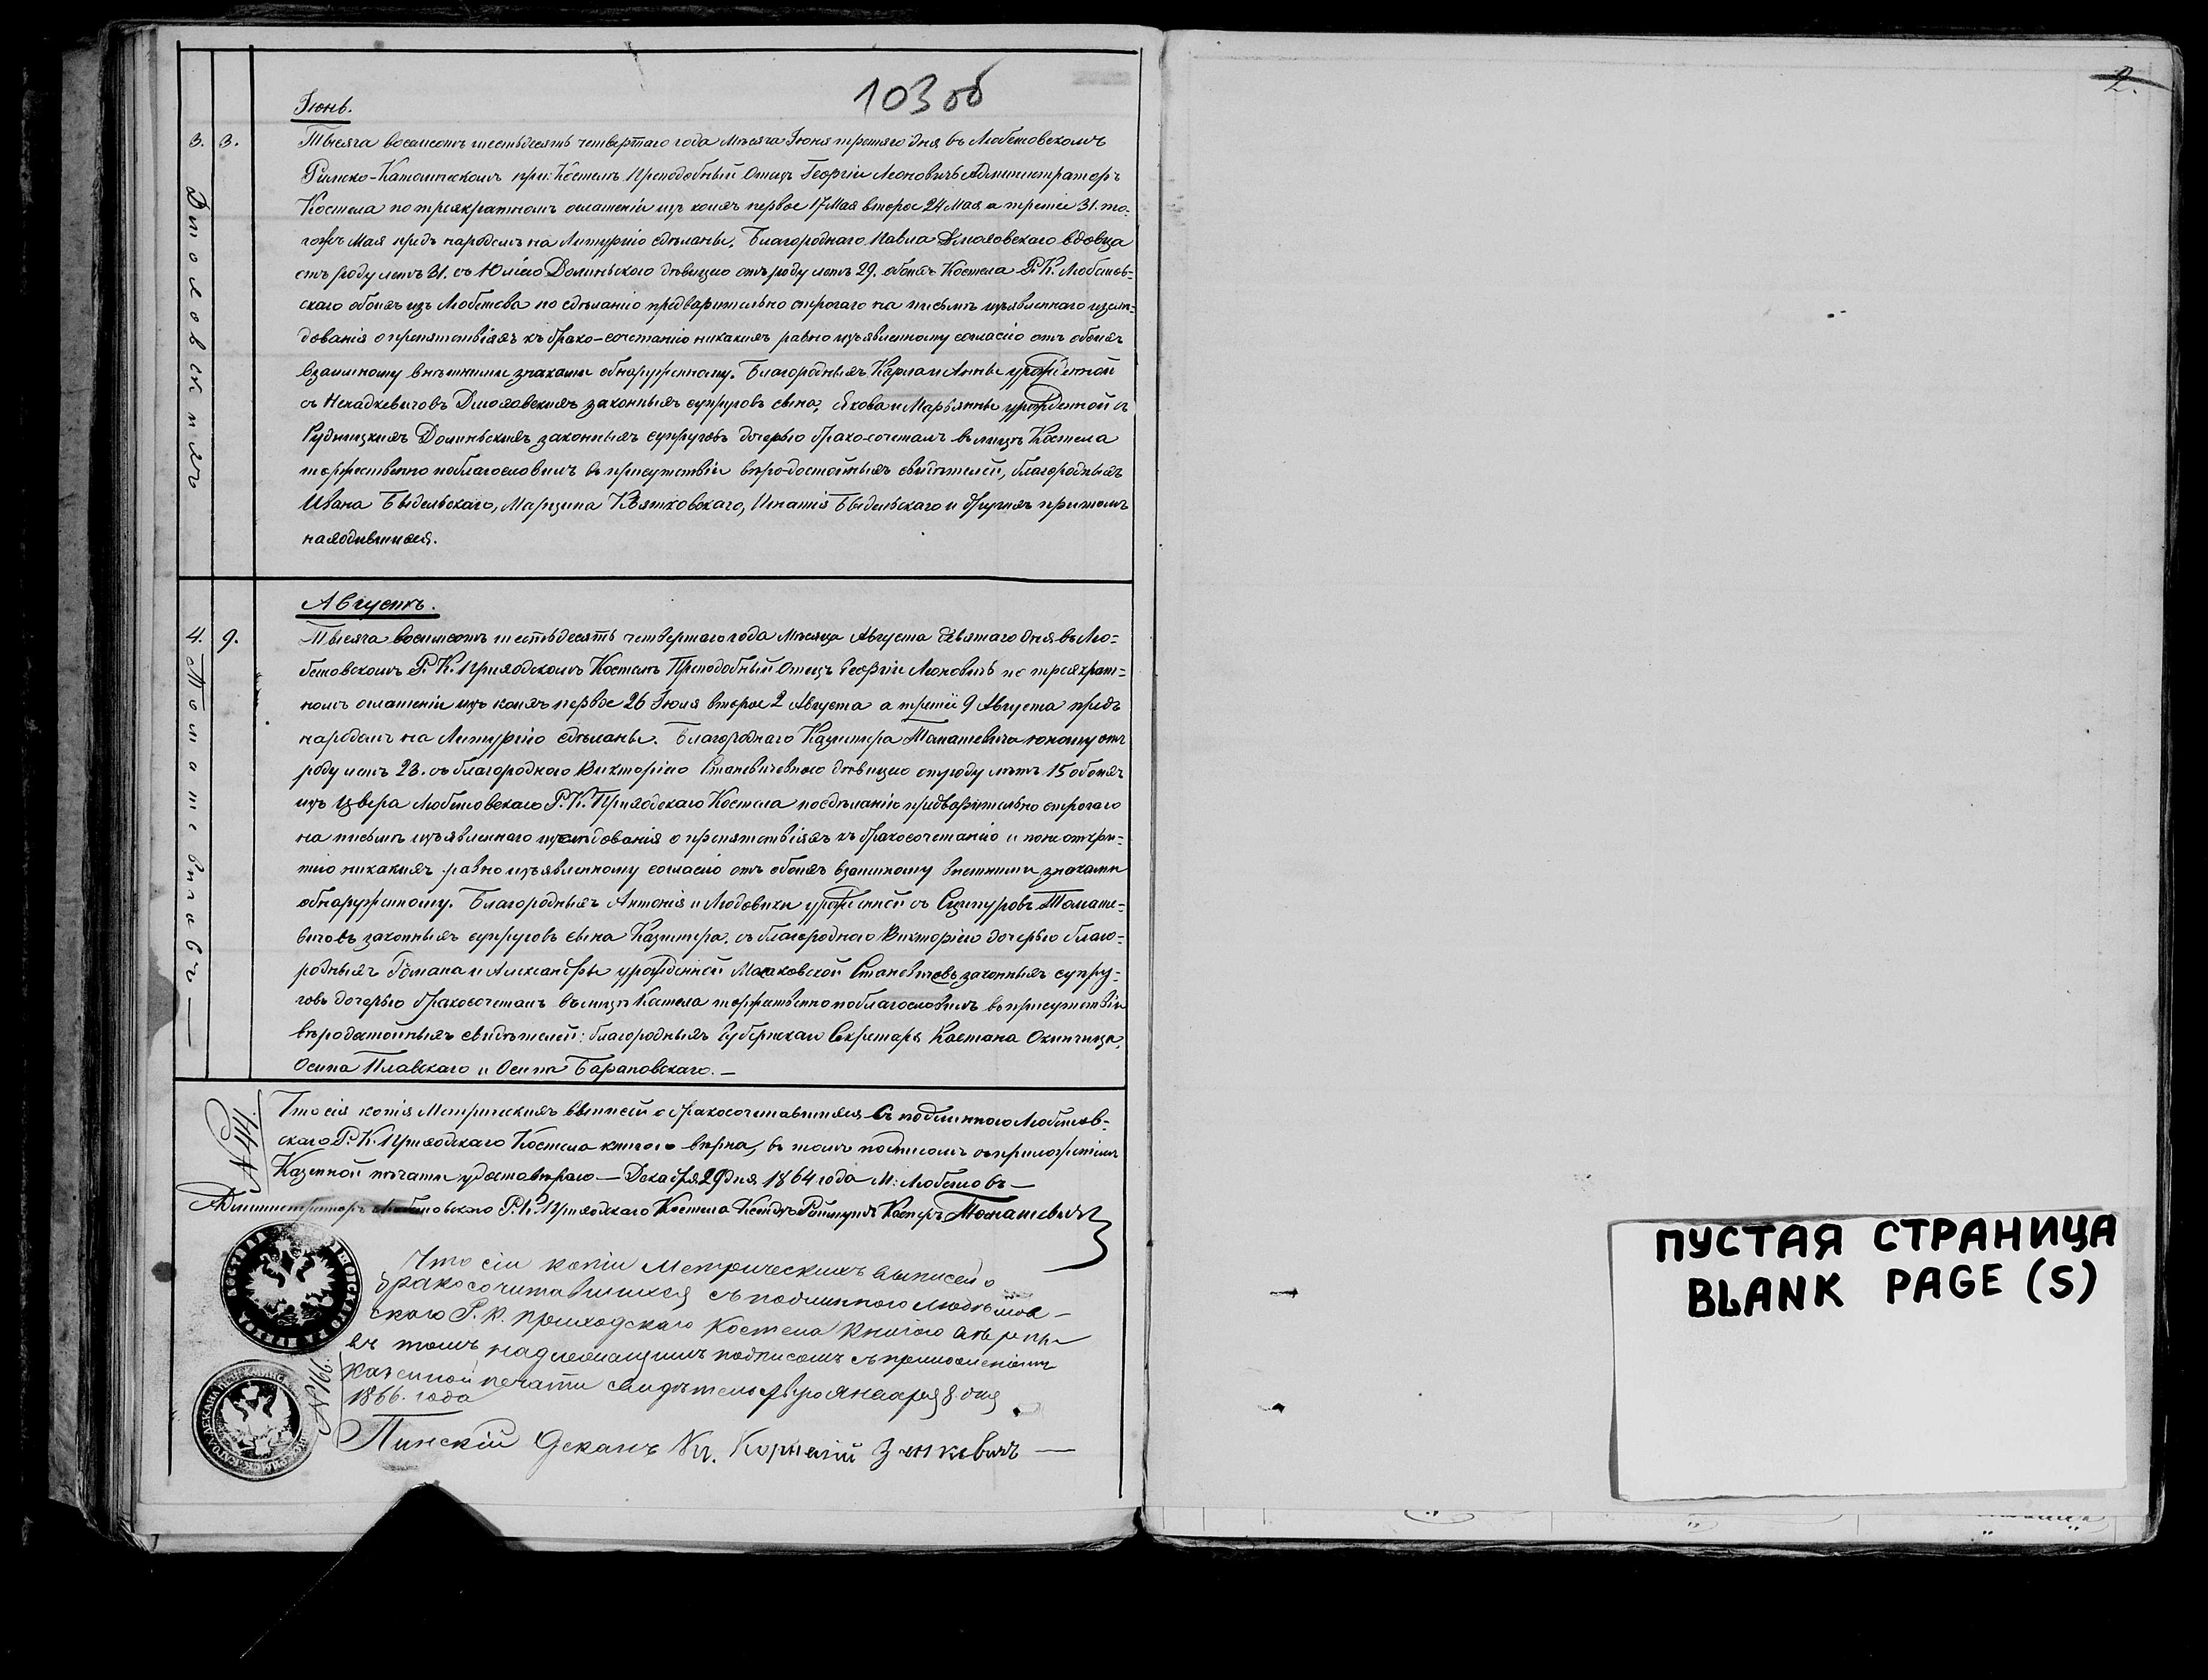 103 об
2.
Іюнь.
3. 3. Тысяча восемсотъ шестьдесятъ четвертаго года Мѣсяца Іюня третяго дня въ Любешовскомъ
Римско-Католическомъ при: Костелѣ Преподобный Отецъ Георгій Леоновичъ Администраторъ
Костела по треякратномъ оглашеніи изъ коихъ первое 17 Мая второе 24 Мая а третіе 31. то-
гожъ Мая предъ народомъ на Литургію сдѣланы, Благороднаго Павла Дмоховскаго вдовца
отъ роду летъ 31. съ Юлією Долиньского дѣвицею отъ роду летъ 29. обоихъ Костела Р. К. Любешов-
скаго обоихъ изъ Любешова по сдѣланію предварительно строгаго на письмѣ изъявленнаго изслѣ-
дованія о препятствіяхъ къ брако-сочетанію никакихъ равно изъявленному согласію отъ обоихъ
взаимному внѣшними знаками обнаруженному. Благородныхъ Карла и Анны урожденной
съ Ненадкевичовъ Дмоховскихъ законныхъ супруговъ сына, Якова и Марьянны урожденной съ
Рудницкихъ Долиньскихъ законныхъ супруговъ дочерью брако-сочеталъ въ лицѣ Костела
торжественно поблагословилъ въ присутствіи вѣро-достойныхъ свидѣтелей, благородныхъ
Ивана Быдельскаго, Марцина Квятковскаго, Игнатія Быдельскаго и другихъ притомъ
находившихся.
Дмоховскихъ
Августъ.
4. 9. Тысяча восемсотъ шестьдесятъ четвертаго года Мѣсяца Августа девятаго дня въ Лю-
бешовскомъ Р. К. Приходскомъ Костелѣ Преподобный Отецъ Георгіи Леоновичъ по треякрат-
номъ оглашеніи изъ коихъ первое 26 Іюля второе 2 Августа а третіе 9 Августа предъ
народомъ на Литургію сдѣланы. Благороднаго Казимера Томашевича юношу отъ
роду летъ 23. съ благородною Викторією Станевичевною дѣвицею отъ роду лѣтъ 15 обоихъ
изъ Любешовскаго Р. К. Приходскаго Костела по сдѣланію предварительно строгаго
на письмѣ изъявленнаго изслѣдованія о препятствіяхъ къ бракосочетанію и по не откры-
тію никакихъ равно изъявленному согласію отъ обоихъ взаимному внешними знаками
обнаруженному. Благородныхъ Антонія и Людовики урожденной съ Сципуровъ Томаше-
вичовъ законныхъ супруговъ сына Казимера, съ благородною Викторією дочерью благо-
родныхъ Романа и Александры урожденной Станевичовъ законныхъ супру-
говъ дочерью бракосочеталъ въ лицѣ Костела торжественно поблагословилъ въ присутствіи
вѣродостойныхъ свидѣтелей: благородныхъ Губернскаго Секретаря Каетана Окинчица,
Осипа Плавскаго и Осипа Барановскаго.—
Томашевичовъ—
N 114.
Что сія копія Метрическихъ выписей о бракосочетавшихся съ подлинною Любешов-
скаго Р. К. Приходскаго Костела книгою вѣрна, въ томъ подписомъ съ приложеніемъ
Казенной печати удостовѣряю— Декабря 29 дня 1864 года М: Любешовъ—
Администраторъ Любешовскаго Р. К. Приходскаго Костела Ксендзъ Раймундъ Касперъ Томашевичъ
Что сіи копіи Метрическихъ выписей о
бракосочитавшихся съ подлинною Любешов-
ского Р. К. приходскаго Костела Книгою вѣрны
въ томъ надлежащимъ подписомъ съ приложеніемъ
казенной печати свидѣтельствую Января 8. дня
1866. года
N 166.
Пинскій Деканъ Кс. Корнелій Зенкевичъ —
ПУСТАЯ СТРАНИЦА
BLANK PAGE (S)